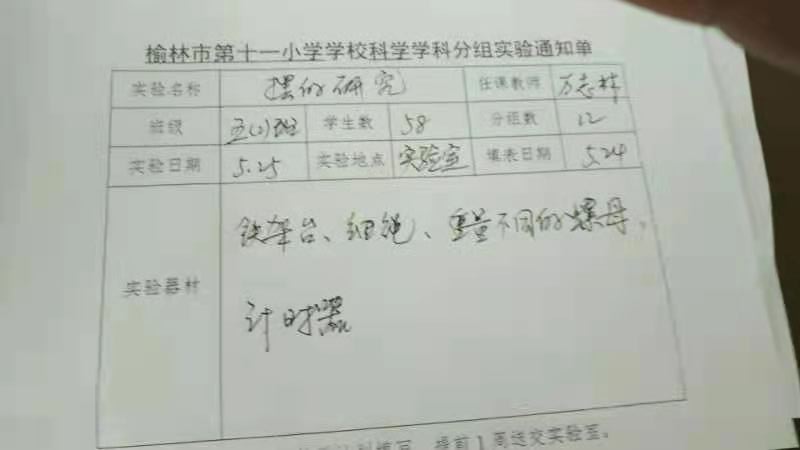 榆林市第十一小学学校科学学科分组实验通知单
实验名称 摆的研究 任课教师 万志林
班级 五(2)班 学生数 58 分组数 12
实验日期 5.25 实验地点 实验室 填表日期 5.24
实验器材 铁架台、细绳、重量不同的螺母、
计时器
提前1周送交实验室。